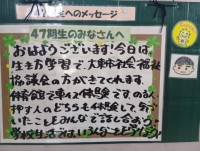 へのメッセージ
47期生のみなさんへ
おはようございます！今日は、
生き方学習で、大東市社会福祉
協議会の方がきてくれます。
体育館で車イス体験です。のる人
押す人のどちらも体験して、気づ
いたことをみんなで話し合おう